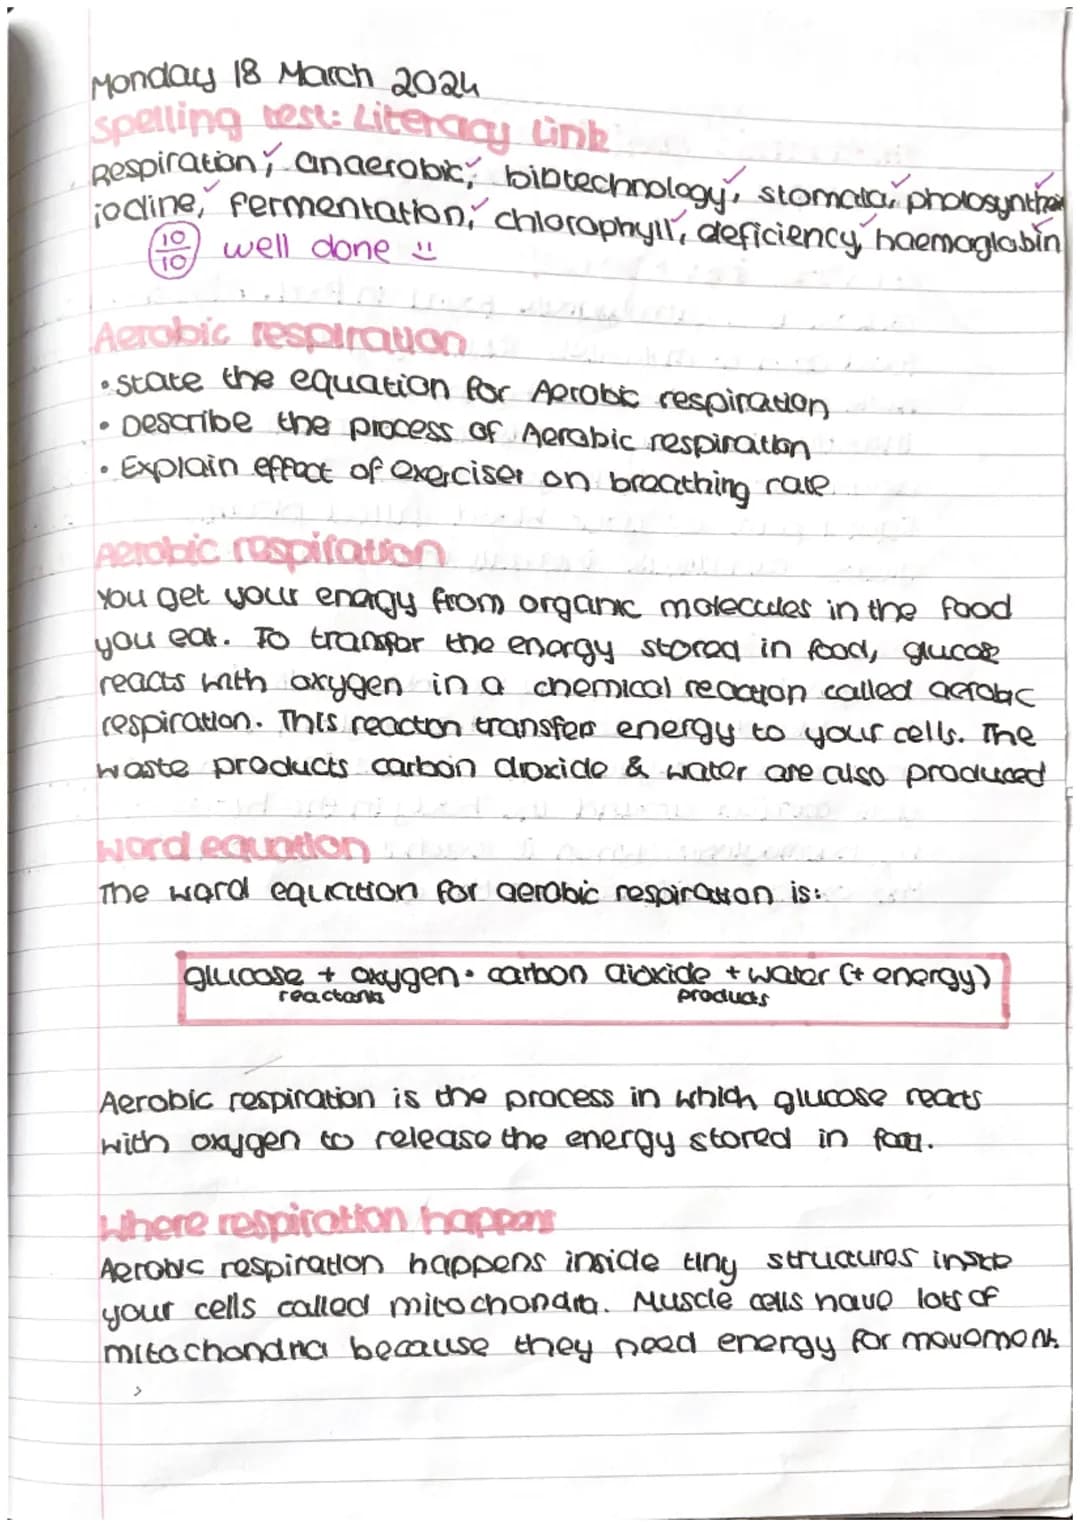 Monday 18 March 2024
Spelling test: Literacy Link
Respiration, anaerobic, biotechnology, stomata, photosynthesis
iodine, fermentation, chlorophyll, deficiency, haemoglobin
10/10 well done :)
Aerobic respiration
• State the equation for Aerobic respiration
• Describe the process of Aerobic respiration
• Explain effect of exerciser on breathing rate.
Aerobic respiration
You get your enagy from organic molecules in the food
you eat. To transfer the energy stored in food, glucose
reacts with oxygen in a chemical reaction called aerobic
respiration. This reaction transfers energy to your cells. The
waste products carbon dioxide & water are also produced
word equation
The word equation for aerobic respiration is:
glucose + oxygen • carbon dioxide + water (+ energy)
reactants products
Aerobic respiration is the process in which glucose reacts
with oxygen to release the energy stored in food.
Where respiration happens
Aerobic respiration happens inside tiny structures inside
your cells called mitochondria. Muscle cells have lots of
mitochondria because they need energy for movement.